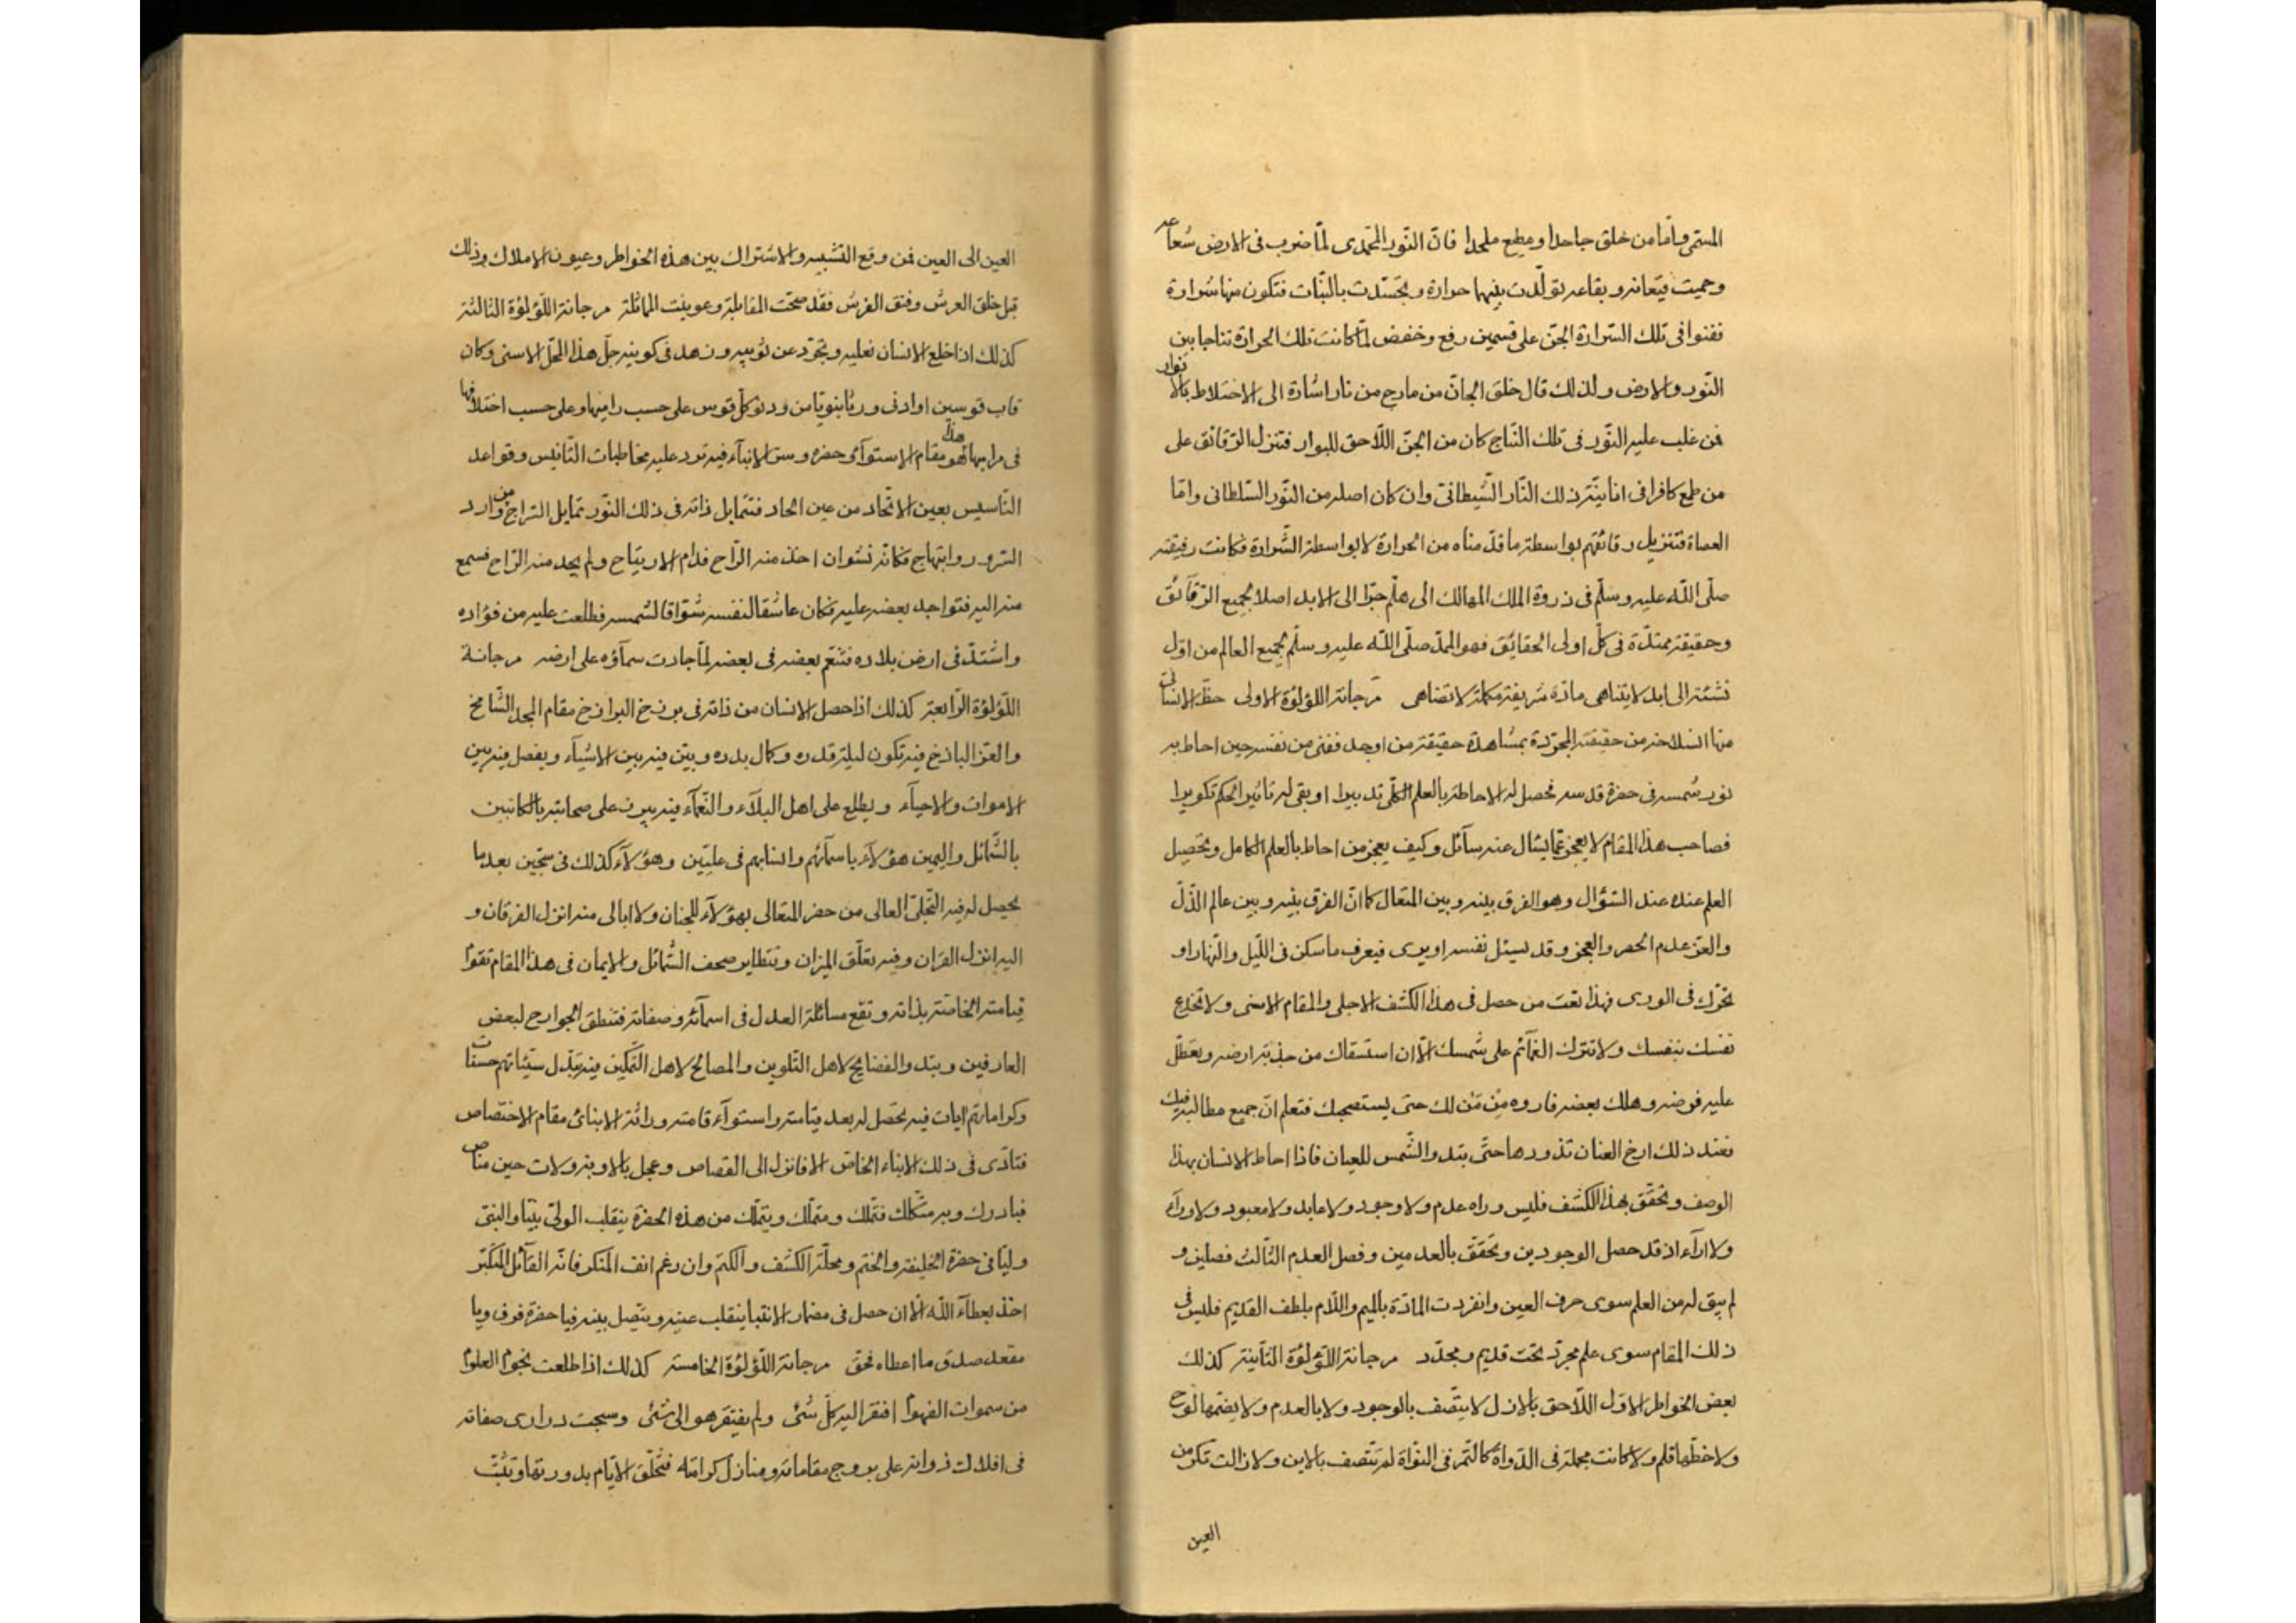 المسمى واما من خلق جاحدا ومطع ملحدا فانّ النّور المحمّدى لمّا ضرب فى الارض شعاعه
وحميت قيعانه وبقاعه تولّدت بينهما حرارة وتجسّدت بالنّبات فتكون منها شرارة
ففتوا فى تلك الشرارة الجنّ على قسمين رفع وخفض لمّا كانت تلك الحرارة نتاجا بين
النّور والارض ولذلك قال خلق الجانّ من مارج من نار اشارة الى الاختلاط بالانوار
فمن غلب عليه النّور فى تلك النّتاج كان من الجنّ اللّاحق للبوار فتنزل الرّقائق على
من طمع كافرا فى انانيّته ذلك النّار الشّيطانىّ وان كان اصله من النّور السّلطانى وامّا
العصاة فتنزيل رقائقهم بواسطة ما قدّمناه من الحرارة لا بواسطة الشّرارة فكانت رقيقته
صلّى اللّه عليه وسلّم فى ذروة الملك المهالك الى هلّم جرّا الى الابد اصلا لجميع الرّقائق
وحقيقته ممتدّة فى كلّ اولى الحقائق فهو الممدّ صلّى اللّه عليه وسلّم لجميع العالم من اوّل
نشئته الى ابد لا يتناهى مادّة شريفة مكملة لا تضاهى مرجانة اللؤلؤة الاولى حظّ الانسان
منها انسلاخه من حقيقته المجرّدة بمشاهدة حقيقة من اوجد ففنى من نفسه حين احاط به
نور شمسه فى حضرة قدسه فحصل له الاحاطة بالعلم الكلّى تدبيرا او بقى له تأثير الحكم تكويرا
فصاحب هذا المقام لا يعجز عمّا يسأل عنه سآئل وكيف يعجز من احاط بالعلم الكامل وتحصيل
العلم عنده عند السّؤال وهو الفرق بينه وبين المتعال كما انّ الفرق بينه وبين عالم الذّلّ
والعزّ عدم الحصر والعجز وقد يسئل نفسه او يرى فيعرف ما سكن فى اللّيل والنّهار او
تحرّك فى الورى فهذا نعت من حصل فى هذا الكشف الاجلى والمقام الاسنى ولا تخدع
نفسك بنفسك ولا تترك الغمآئم على شمسك الّا ان استسقاك من جذبة ارضه وتعطّل
عليه فرضه وهلك بعضه فاروه من مزنك حتى يستصحيك فتعلم انّ جميع مطالبه فيك
فعند ذلك ارخ العنان تذورها حتّى تبدو الشّمس للعيان فاذا احاط الانسان بهذا
الوصف وتحقّق بهذا الكشف فليس وراه عدم ولا وجود ولا عابد ولا معبود ولا ورآء
ولا ارآء اذ قد حصل الوجودين وتحقّق بالعدمين وفصل العدم الثّالث فصلين و
لم يبق له من العلم سوى حرف العين وانفردت المادّة بالميم واللّام بلطف القديم فليس فى
ذلك المقام سوى علم مجرّد تحت قديم ومجدّد مرجانة اللّؤلؤة الثّانية كذلك
بعض الخواطر الاوّل اللّاحق بالازل لا يتّصف بالوجود ولا بالعدم ولا يضمّها لوح
ولا خطّها قلم ولا كانت مجملة فى الدّواة كالتّمر فى النّواة لم تتّصف بالاين ولا زالت تكر من
العين
العين الى العين فمن وقع التّشبيه والاشتراك بين هذه الخواطر وعيون الاملاك وذلك
قبل خلق العرش وفتق الفرش فقد صحّت المقابلة وعوينت المماثلة مرجانة اللّؤلؤة الثالثة
كذلك اذا خلع الانسان نعليه وتجرّد عن ثوبيه وزهد فى كونيه حلّ هذا المحلّ الاسنى وكان
قاب قوسين او ادنى وربّا بنوبّا من ودنو كلّ قوس على حسب راميها وعلى حسب اختلافها
فى مراميها هذا فهو مقام الاستوآء وحضرة وستر الانبآء فيه تورد عليه مخاطبات التّانيس وقواعد
التّأسيس بعين الاتّحاد من عين الحاد فتتمايل ذاته فى ذلك النّور تمايل السراج من وارد
السّرور وابتهاج فكانّه نشوان اخذ منه الرّاح فدام الارتياح ولم يجد منه الرّاح فسمع
منه اليه فتواجد بعضه عليه فكان عاشقا لنفسه شوّاقا لشمسه فطلعت عليه من فؤاده
واشتدّ فى ارض بلاده فتنعّم بعضه فى بعضه لمّا جادت سمآؤه على ارضه مرجانة
اللّؤلؤة الرّابعة كذلك اذا حصل الانسان من ذاته فى برزخ البرازخ مقام المجد الشّامخ
والعزّ الباذخ فيه تكون ليلة قدره وكمال بدره وبيّن فيه بين الاشيآء ويفصل فيه بين
الاموات والاحيآء ويطلع على اهل البلآء والنّعمآء فيه يبرز على صحابته بالكتابين
بالشّمائل واليمين هؤلآء باسمآئهم وانسابهم فى علّيين وهؤلآء كذلك فى سجّين بعد ما
يحصل له فيه التّجلّى العالى من حضر المتعالى بهؤلآء للجنان ولا ابالى منه انزل الفرقان و
اليه انزل القران وفيه تعلّق الميزان وتتطاير صحف الشّمائل والايمان فى هذا المقام تقوم
قيامته الخاصّة بذاته وتقع مسائلة العدل فى اسمآئه وصفاته فتنطق الجوارح لبعض
العارفين وتبدو الفضايح لاهل التّلوين والمصالح لاهل التّمكين فيه تبدّل سيّئاتهم حسنات
وكراماتهم ايات فيه تحصل له بعد قيامته واستوآء قامته وراثة الانبائ مقام الاختصاص
فتأدّى فى ذلك الانباء الخاصّ الا فانزل الى القصاص وعجل بالاوبة ولات حين مناص
فبادرك وبر متملّك فتملّك ومتملّك ويتملّك من هذه الحضرة ينقلب الولىّ نبيّا والنبىّ
وليّا فى حضرة الخليفة والختم ومحلّة الكشف والكتم وان رغم انف المنكر فانّه القآئل المتكبّر
اخذ بعطآء اللّه الّا ان حصل فى مضمار الانقبا ينقلب عينه ويتّصل بينه فيا حضرة فرق ويا
مقعد صدق ما اعطاه فحق مرجانة اللّؤلؤة الخامسة كذلك اذا طلعت نجوم العلوم
من سموات الفهوم افتقر اليه كلّ شئ ولم يفتقر هو الى شئ وسبحت درارى صفاته
فى افلاك ذواته على بروج مقاماته ومنازل كراماته فتخلّق الايّام بدورتها وتثبّت